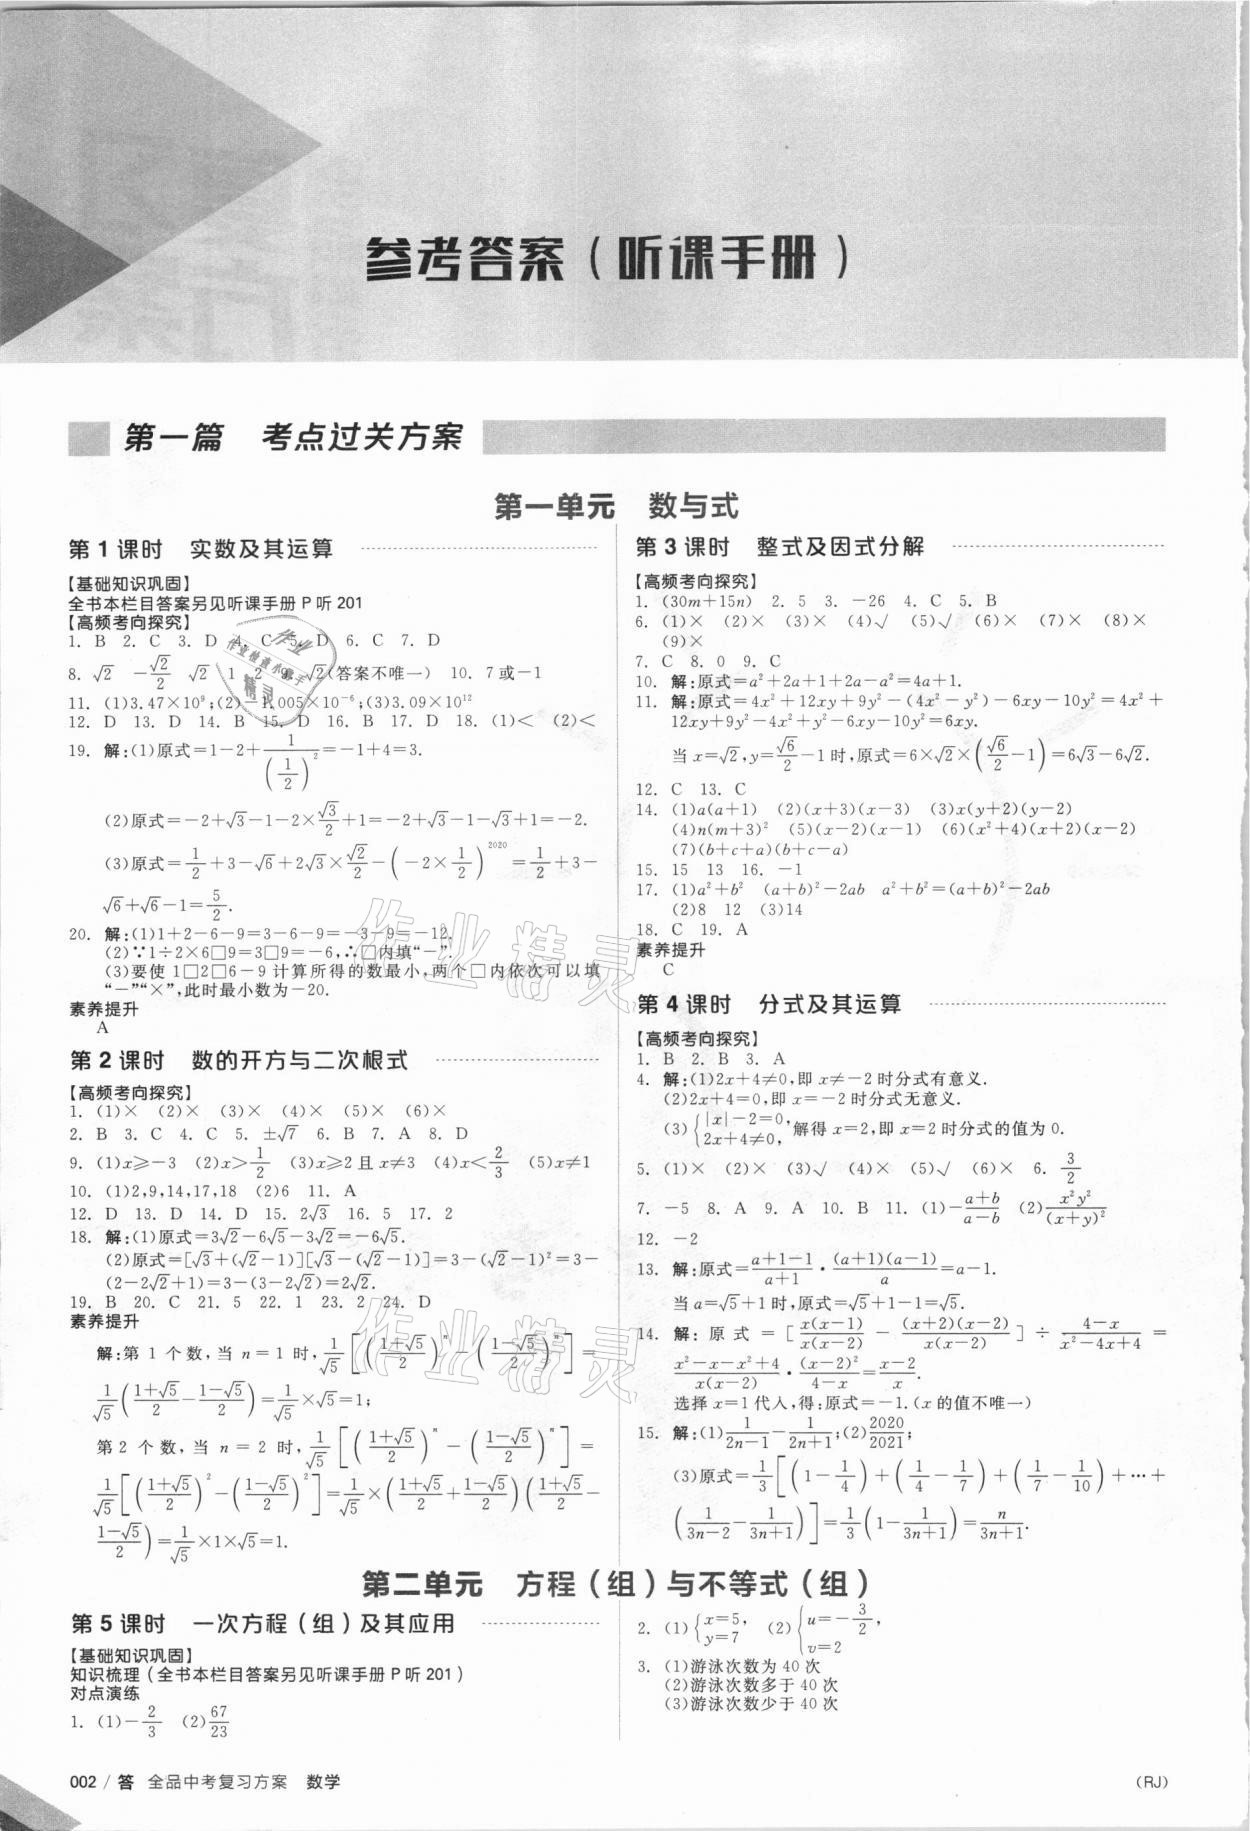 参考答案（听课手册）
第一篇 考点过关方案
第一单元 数与式
第1课时 实数及其运算
【基础知识巩固】
全书本栏目答案另见听课手册P听201
【高频考向探究】
1. B 2. C 3. D 4. C 5. D 6. C 7. D
8. √2 -√2/2 √2 1 2 9. √2(答案不唯一) 10. 7或-1
11. (1)3.47×10⁹;(2)-1.005×10⁻⁶;(3)3.09×10¹²
12. D 13. D 14. B 15. D 16. B 17. D 18. (1)< (2)<
19. 解:(1)原式=1-2+1/(1/2)²=-1+4=3.
(2)原式=-2+√3-1-2×√3/2+1=-2+√3-1-√3+1=-2.
(3)原式=1/2+3-√6+2√3×√2/2-(-2×1/2)²⁰²⁰=1/2+3-
√6+√6-1=5/2.
20. 解:(1)1+2-6-9=3-6-9=-3-9=-12.
(2)∵1÷2×6□9=3□9=-6,∴□内填“-”.
(3)要使1□2□6-9计算所得的数最小,两个□内依次可以填
“-”“×”,此时最小数为-20.
素养提升
A
第2课时 数的开方与二次根式
【高频考向探究】
1. (1)× (2)× (3)× (4)× (5)× (6)×
2. B 3. C 4. C 5. ±√7 6. B 7. A 8. D
9. (1)x≥-3 (2)x>1/2 (3)x≥2且x≠3 (4)x<2/3 (5)x≠1
10. (1)2,9,14,17,18 (2)6 11. A
12. D 13. D 14. D 15. 2√3 16. 5 17. 2
18. 解:(1)原式=3√2-6√5-3√2=-6√5.
(2)原式=[√3+(√2-1)][√3-(√2-1)]=3-(√2-1)²=3-
(2-2√2+1)=3-(3-2√2)=2√2.
19. B 20. C 21. 5 22. 1 23. 2 24. D
素养提升
解:第1个数,当n=1时,1/√5[((1+√5)/2)ⁿ-((1-√5)/2)ⁿ]=
1/√5((1+√5)/2-(1-√5)/2)=1/√5×√5=1;
第2个数,当n=2时,1/√5[((1+√5)/2)ⁿ-((1-√5)/2)ⁿ]=
1/√5[((1+√5)/2)²-((1-√5)/2)²]=1/√5×((1+√5)/2+(1-√5)/2)((1+√5)/2-
(1-√5)/2)=1/√5×1×√5=1.
第3课时 整式及因式分解
【高频考向探究】
1. (30m+15n) 2. 5 3. -26 4. C 5. B
6. (1)× (2)× (3)× (4)√ (5)√ (6)× (7)× (8)×
(9)×
7. C 8. 0 9. C
10. 解:原式=a²+2a+1+2a-a²=4a+1.
11. 解:原式=4x²+12xy+9y²-(4x²-y²)-6xy-10y²=4x²+
12xy+9y²-4x²+y²-6xy-10y²=6xy.
当x=√2,y=√6/2-1时,原式=6×√2×(√6/2-1)=6√3-6√2.
12. C 13. C
14. (1)a(a+1) (2)(x+3)(x-3) (3)x(y+2)(y-2)
(4)n(m+3)² (5)(x-2)(x-1) (6)(x²+4)(x+2)(x-2)
(7)(b+c+a)(b+c-a)
15. 15 13 16. -1
17. (1)a²+b² (a+b)²-2ab a²+b²=(a+b)²-2ab
(2)8 12 (3)14
18. C 19. A
素养提升
C
第4课时 分式及其运算
【高频考向探究】
1. B 2. B 3. A
4. 解:(1)2x+4≠0,即x≠-2时分式有意义.
(2)2x+4=0,即x=-2时分式无意义.
(3){|x|-2=0, 2x+4≠0, 解得x=2,即x=2时分式的值为0.
5. (1)× (2)× (3)√ (4)× (5)√ (6)× 6. 3/2
7. -5 8. A 9. A 10. B 11. (1)-(a+b)/(a-b) (2)x²y²/(x+y)²
12. -2
13. 解:原式=(a+1-1)/(a+1)·(a+1)(a-1)/a=a-1.
当a=√5+1时,原式=√5+1-1=√5.
14. 解:原式=[x(x-1)/x(x-2)-(x+2)(x-2)/x(x-2)]÷(4-x)/(x²-4x+4)=
(x²-x-x²+4)/x(x-2)·(x-2)²/(4-x)=(x-2)/x.
选择x=1代入,得:原式=-1.(x的值不唯一)
15. 解:(1)1/(2n-1)-1/(2n+1);(2)2020/2021;
(3)原式=1/3[(1-1/4)+(1/4-1/7)+(1/7-1/10)+…+
(1/(3n-2)-1/(3n+1))]=1/3(1-1/(3n+1))=n/(3n+1).
第二单元 方程（组）与不等式（组）
第5课时 一次方程（组）及其应用
【基础知识巩固】
知识梳理（全书本栏目答案另见听课手册P听201）
对点演练
1. (1)-2/3 (2)67/23
2. (1){x=5, y=7 (2){u=-3/2, v=2
3. (1)游泳次数为40次
(2)游泳次数多于40次
(3)游泳次数少于40次
002 / 答 全品中考复习方案 数学
(RJ)
作业精灵
作业精灵
作业
作业检查小帮手
精灵